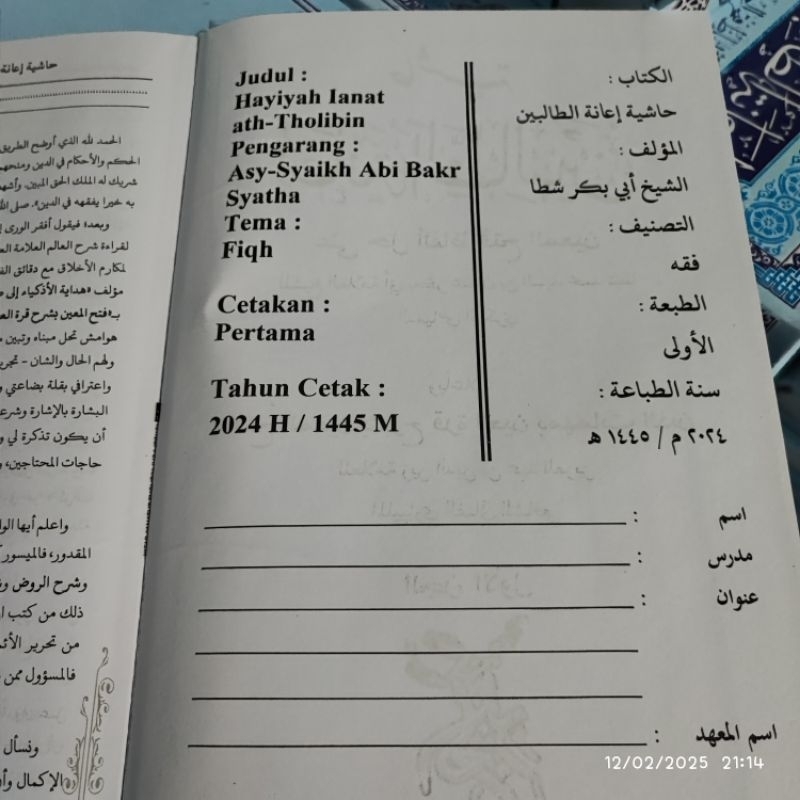 حاشية إعانة
الحمد لله الذي أوضح الطريق
الحكم والأحكام في الدين ومنحهم
شريك له الملك الحق المبين. وأشهد
به خيرا يفقهه في الدين». صلى الله
وبعد» فيقول أفقر الورى
لقراءة شرح العالم العلامة
لمكارم الأخلاق مع دقائق
مؤلف «هداية الأذكياء إلى
بـ«فتح المعين بشرح قرة
هوامش تحل مبناه وتبين
ولهم الحال والشان -
واعترافي بقلة بضاعتي
البشارة بالإشارة
أن يكون تذكرة لي
حاجات المحتاجين،
واعلم أيها
المقدور، فالميسور
وشرح الروض
ذلك من كتب
من تحرير
فالمسؤول ممن
ونسأل
الإكمال
Judul :
Hayiyah Ianat
ath-Tholibin
Pengarang :
Asy-Syaikh Abi Bakr
Syatha
Tema :
Fiqh
Cetakan :
Pertama
Tahun Cetak :
2024 H / 1445 M
الكتاب :
حاشية إعانة الطالبين
المؤلف :
الشيخ أبي بكر شطا
التصنيف :
فقه
الطبعة :
الأولى
سنة الطباعة :
٢٠٢٤ م / ١٤٤٥ هـ
اسم :
مدرس :
عنوان :
اسم المعهد :
12/02/2025 21:14